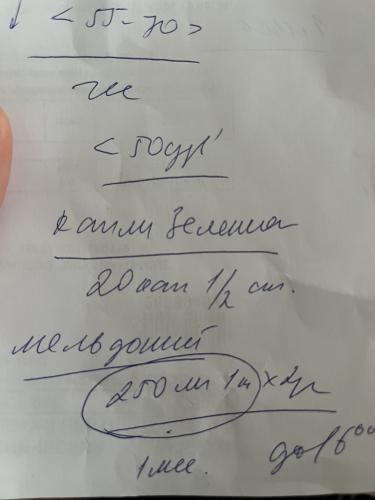 ↓ < 55-70 >
< 50
капли Зеленина
20 кап 1/2 ст.
мельдоний
250 мг 1т х 2р
1 мес. до 16⁰⁰